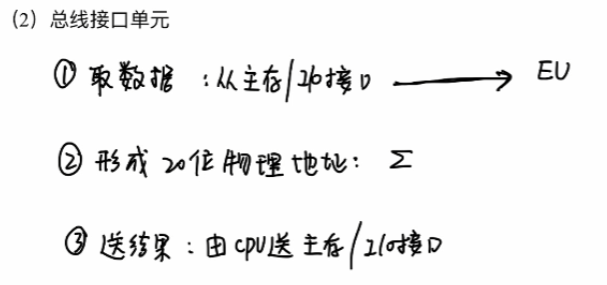 (2) 总线接口单元
① 取数据：从主存/I/O接口 → EU
② 形成20位物理地址：Σ
③ 送结果：由CPU送主存/I/O接口